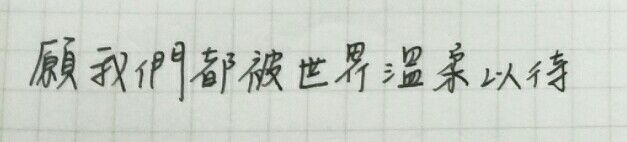 願我們都被世界溫柔以待